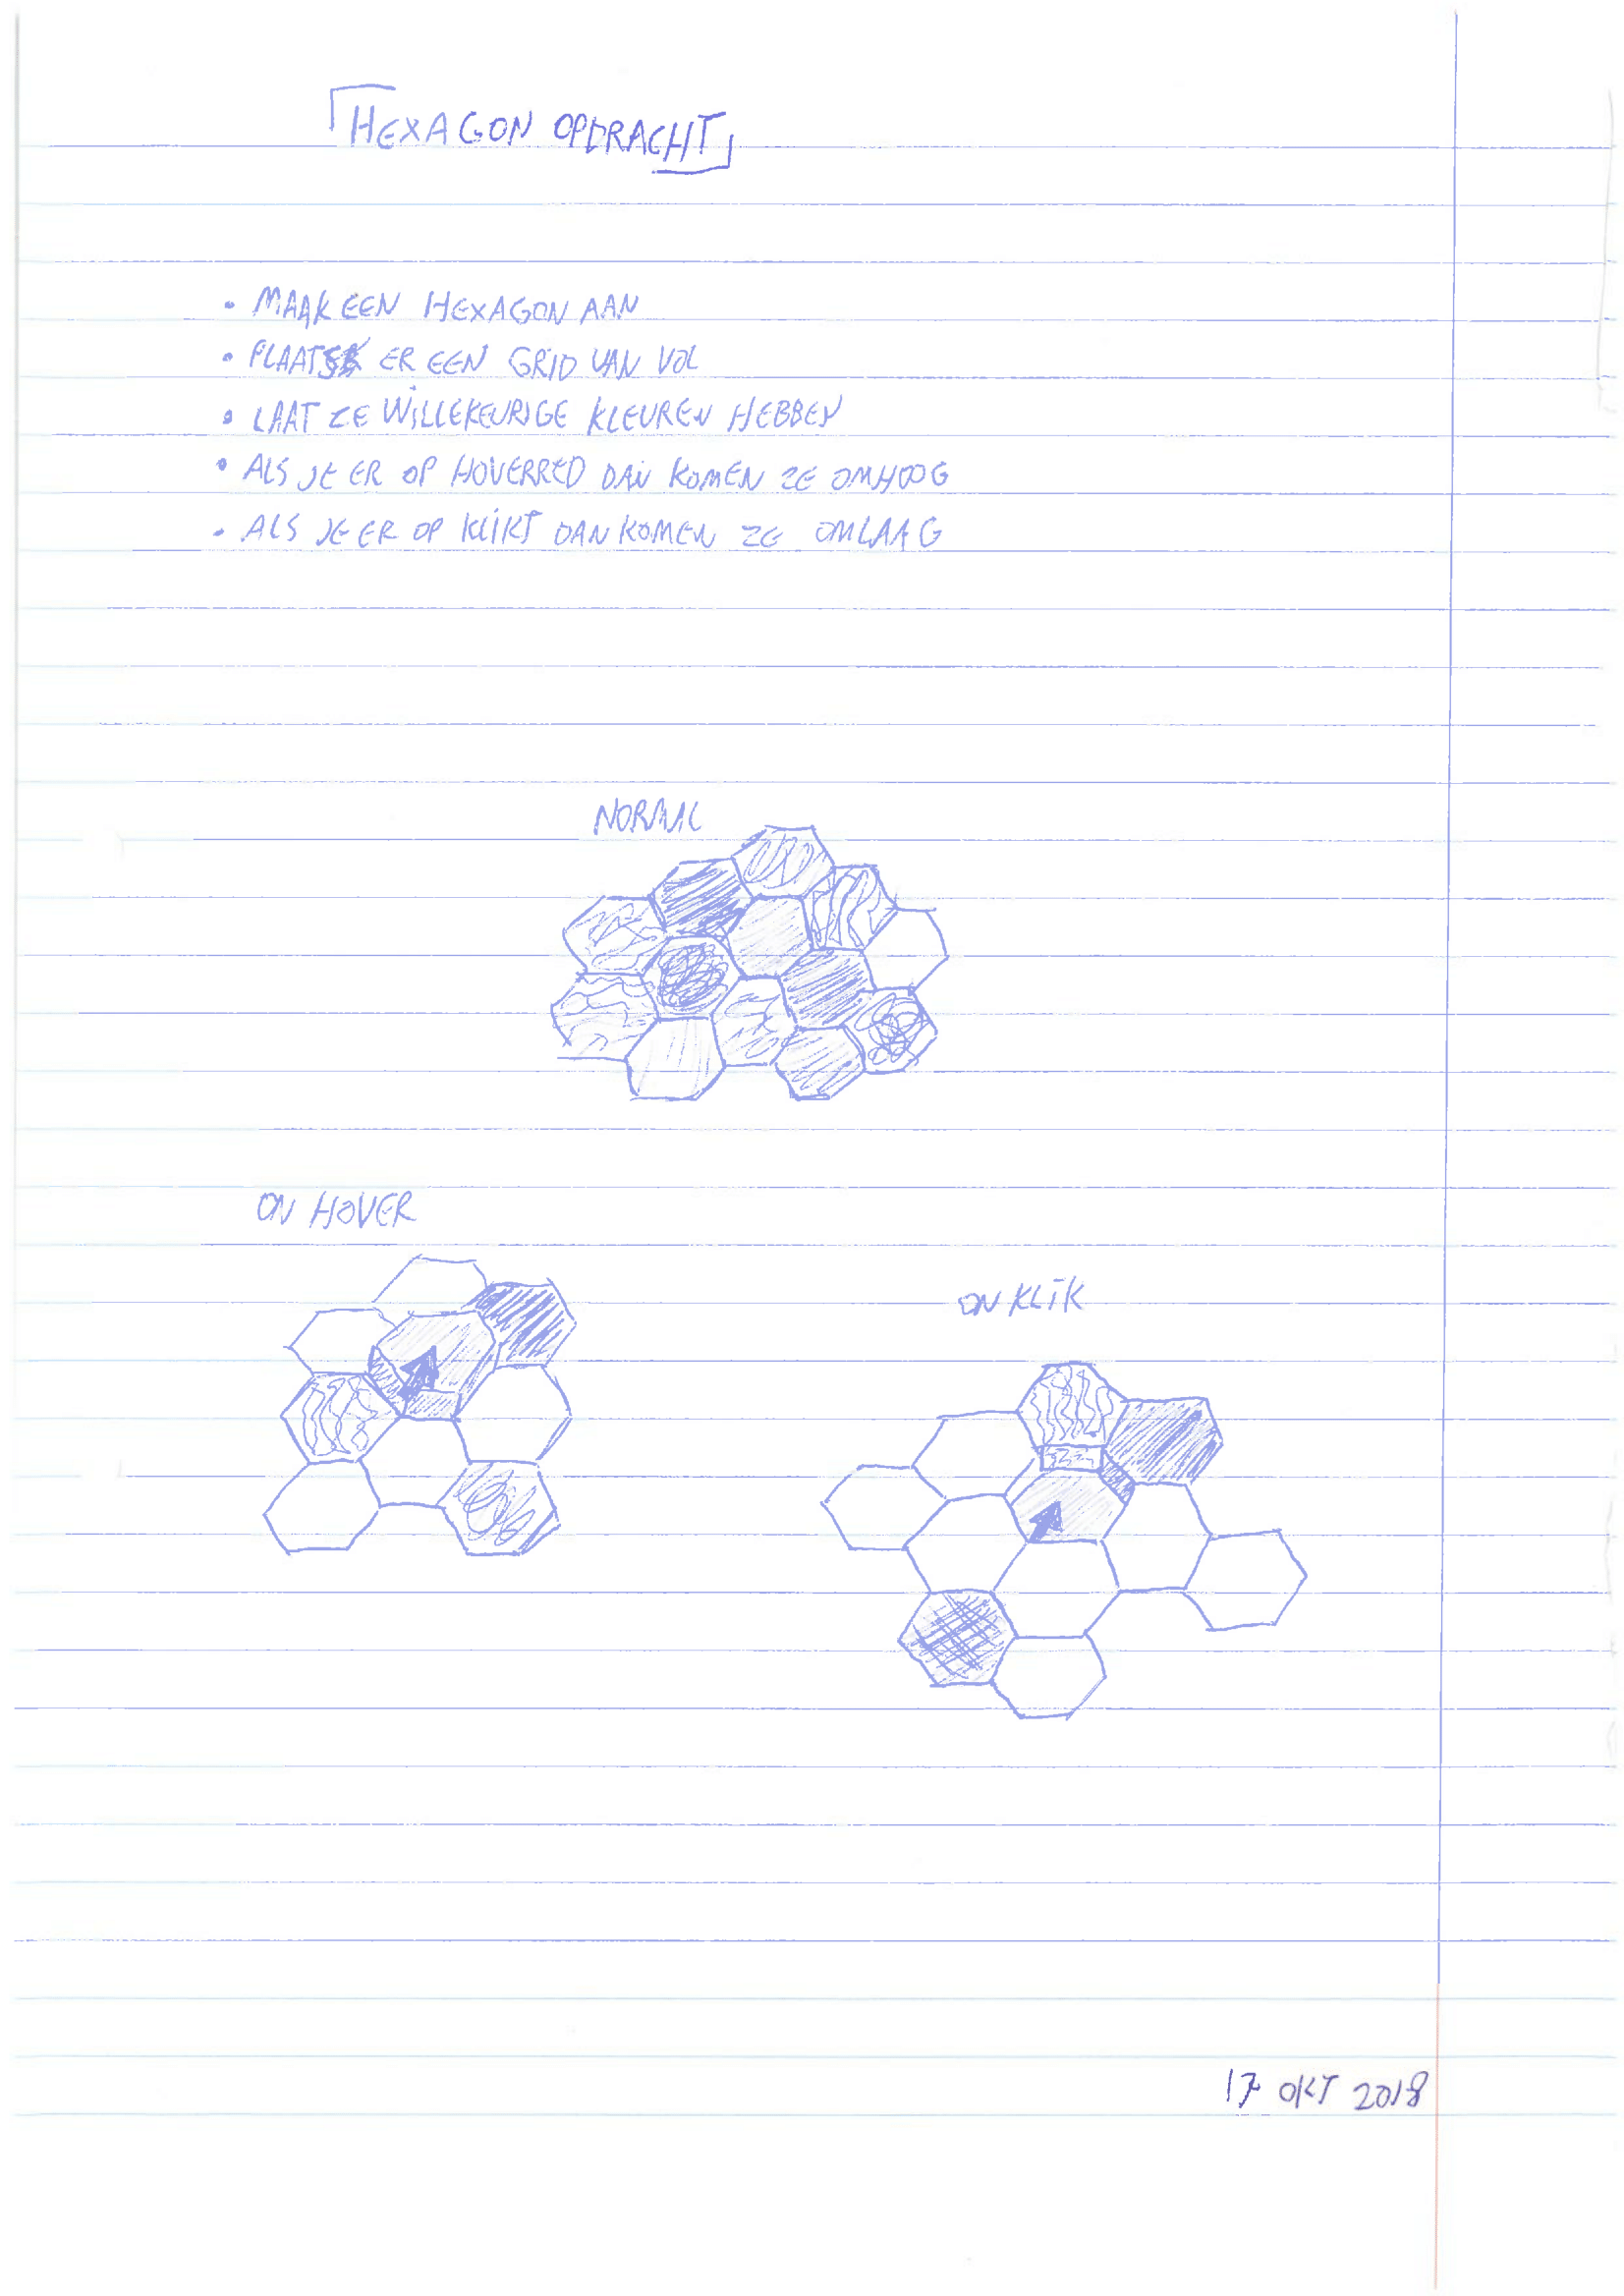 HEXAGON OPDRACHT
• MAAK EEN HEXAGON AAN
• PLAATS ER EEN GRID VAN VOL
• LAAT ZE WILLEKEURIGE KLEUREN HEBBEN
• ALS JE ER OP HOVERRED DAN KOMEN ZE OMHOOG
• ALS JE ER OP KLIKT DAN KOMEN ZE OMLAAG
NORMAL
ON HOVER
ON KLIK
17 OKT 2018